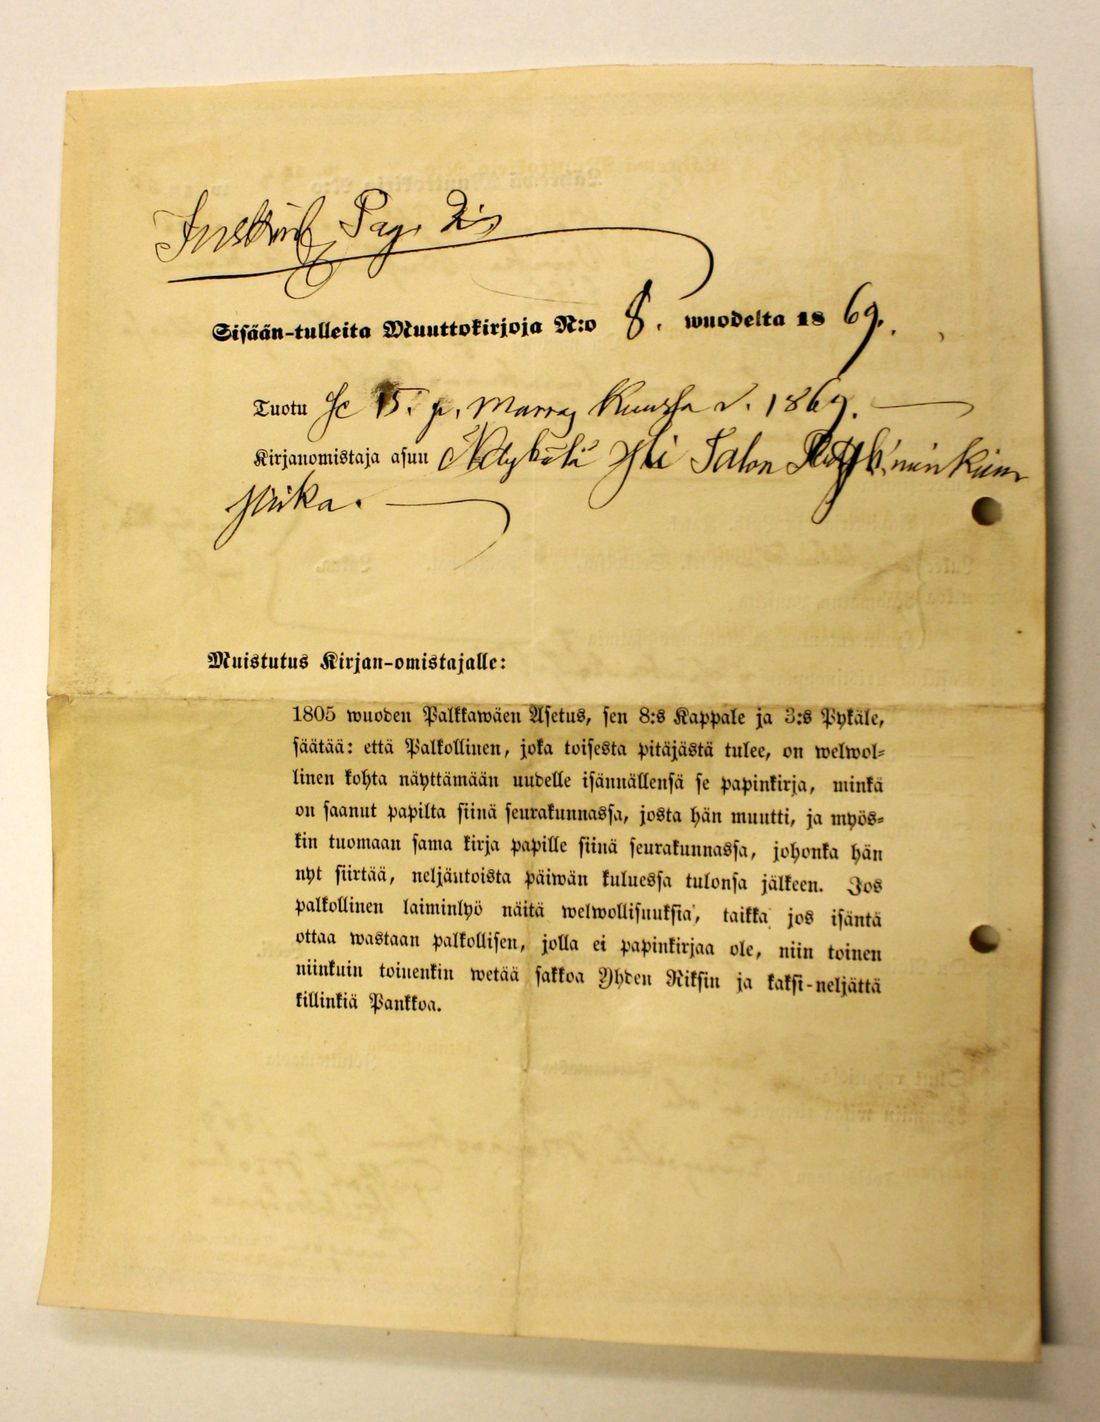 Sisään-tulleita Muuttokirjoja N:o 8. wuodelta 1869.
Tuotu se 15. p. Marras Kuussa v. 1869.
Kirjanomistaja asuu Yli Talon
Muistutus Kirjan-omistajalle:
1805 wuoden Palkkawäen Asetus, sen 8:s Kappale ja 3:s Pykäle,
säätää: että Palkollinen, joka toisesta pitäjästä tulee, on welwol-
linen kohta näyttämään uudelle isännällensä se papinkirja, minkä
on saanut papilta siinä seurakunnassa, josta hän muutti, ja myös-
kin tuomaan sama kirja papille siinä seurakunnassa, johonka hän
nyt siirtää, neljäntoista päiwän kuluessa tulonsa jälkeen. Jos
palkollinen laiminlyö näitä welwollisuuksia, taikka jos isäntä
ottaa wastaan palkollisen, jolla ei papinkirjaa ole, niin toinen
niinkuin toinenkin wetää sakkoa Yhden Riksin ja kaksi-neljättä
killinkiä Pankkoa.